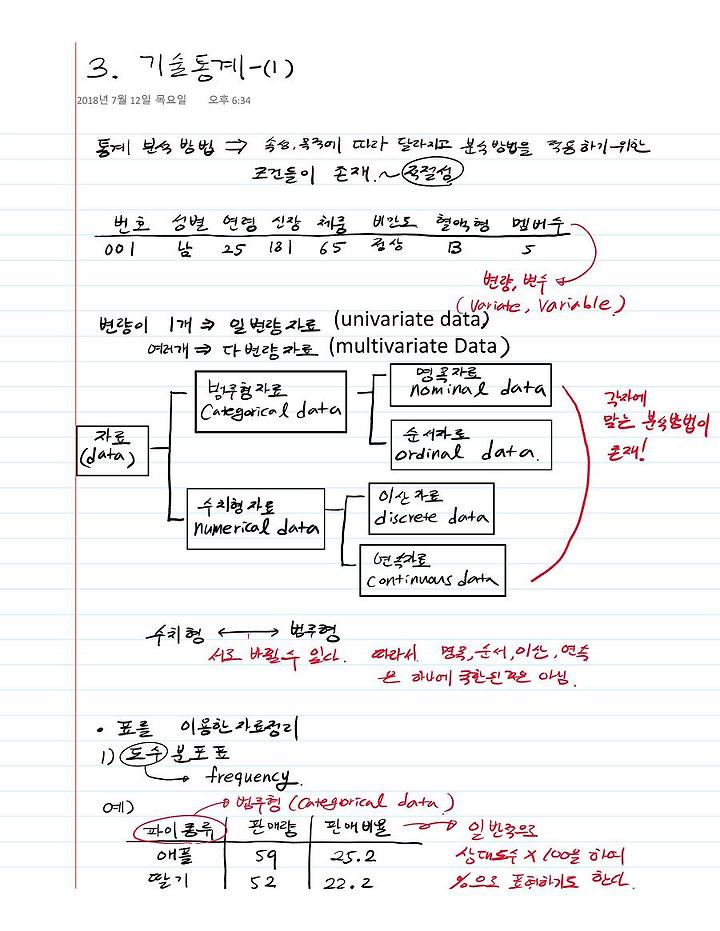 3. 기술통계-(1)
2018년 7월 12일 목요일 오후 6:34
통계 분석 방법 ⇒ 속성, 목적에 따라 달라지고 분석방법을 적용하기 위한
조건들이 존재. ~ 적절성
번호 성별 연령 신장 체중 비만도 혈액형 멤버수
001 남 25 181 65 정상 B 5
변량, 변수
(Variate, Variable)
변량이 1개 ⇒ 일변량자료 (univariate data)
여러개 ⇒ 다변량자료 (multivariate Data)
범주형자료
Categorical data
명목자료
nominal data
각자에
맞는 분석방법이
존재!
자료
(data)
순서자료
ordinal data.
수치형자료
numerical data
이산자료
discrete data
연속자료
continuous data
수치형 ↔ 범주형
서로 바뀔 수 있다. 따라서 명목, 순서, 이산, 연속
은 하나에 국한된 것은 아님.
• 표를 이용한 자료정리
1) 도수분포표
→ frequency.
예) → 범주형 (Categorical data)
파이종류 판매량 판매비율 → 일반적으로
애플 59 25.2 상대도수 × 100을 하여
딸기 52 22.2 %으로 표현하기도 한다.